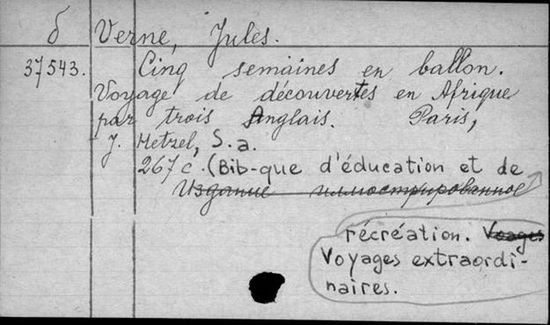 б Verne, Jules.
37543. Cinq semaines en ballon.
Voyage de découvertes en Afrique
par trois Anglais. Paris,
J. Hetzel, S. a.
267 c. (Bib-que d'éducation et de
Издание иллюстрированное
récréation. Voages
Voyages extraordi-
naires.